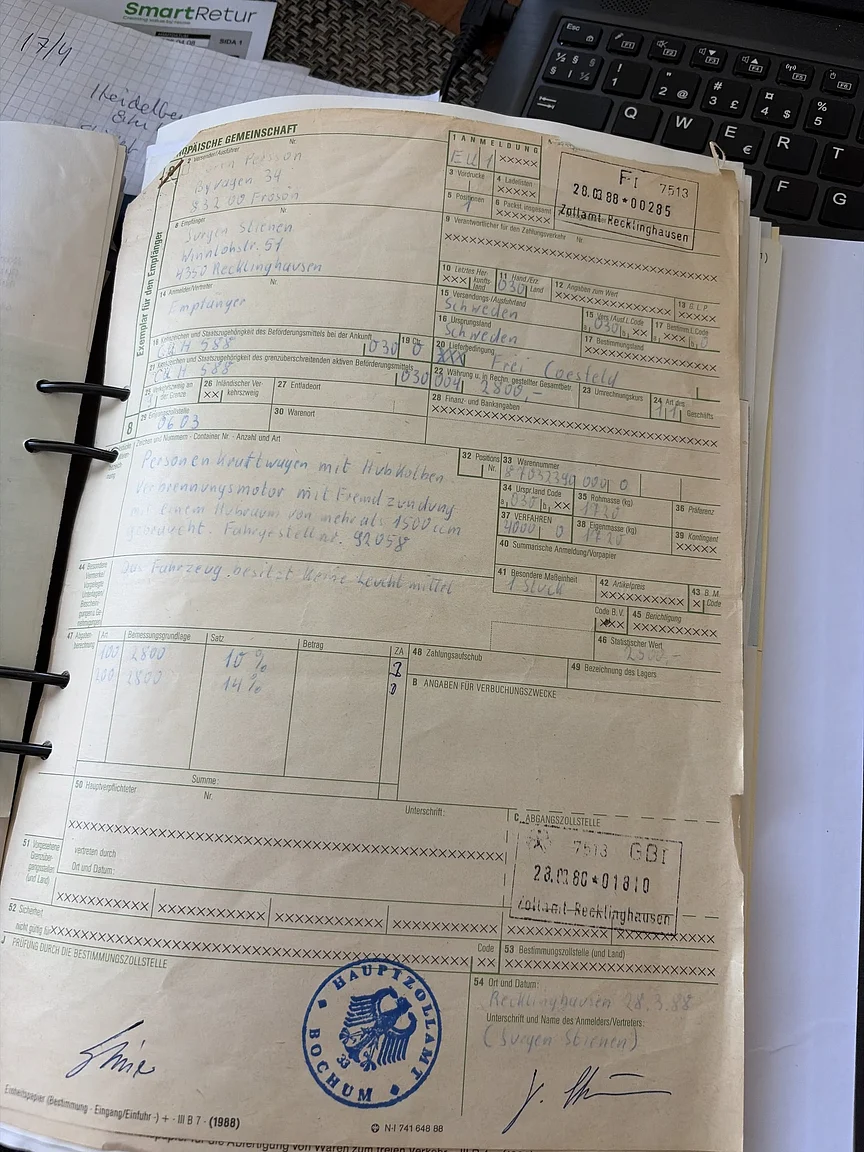 SmartRetur
SIDA 1
17/4
EUROPÄISCHE GEMEINSCHAFT
2 Versender/Ausführer Nr.
Persson
Byvägen 34
832 00 Frösön
1 ANMELDUNG
EU 1 XXXXX
3 Vordrucke
4 Ladelisten
XXXXX
5 Positionen
1
6 Packst. insgesamt
FI 7513
28.03.88*00285
Zollamt Recklinghausen
Exemplar für den Empfänger
8 Empfänger Nr.
Jürgen Stienen
Winnlohstr. 51
4350 Recklinghausen
9 Verantwortlicher für den Zahlungsverkehr Nr.
10 Letztes Herkunftsland
XXX
11 Hand./Erz. Land
030
12 Angaben zum Wert
XXXXXXXXXXXX
13 G.L.P.
XXXXX
14 Anmelder/Vertreter Nr.
Empfänger
15 Versendungs-/Ausfuhrland
Schweden
15 Vers./Ausf.L.Code
a 030 b XX
17 Bestimm.L.Code
16 Ursprungsland
Schweden
17 Bestimmungsland
18 Kennzeichen und Staatszugehörigkeit des Beförderungsmittels bei der Ankunft
588 030
19 Ctr.
0
20 Lieferbedingung
XXX Frei Coesfeld
21 Kennzeichen und Staatszugehörigkeit des grenzüberschreitenden aktiven Beförderungsmittels
588 030
22 Währung u. in Rechn. gestellter Gesamtbetr.
004 2800,-
23 Umrechnungskurs
24 Art des Geschäfts
11
25 Verkehrszweig an der Grenze
26 Inländischer Verkehrszweig
XX
27 Entladeort
28 Finanz- und Bankangaben
29 Eingangszollstelle
0603
30 Warenort
Zeichen und Nummern - Container Nr. - Anzahl und Art
Personenkraftwagen mit Hubkolben
verbrennungsmotor mit Fremdzündung
mit einem Hubraum von mehr als 1500 ccm
gebraucht. Fahrgestellnr. 92058
32 Positions Nr.
33 Warennummer
87032390 000 0
34 Urspr.land Code
a 030 b XX
35 Rohmasse (kg)
1720
36 Präferenz
37 VERFAHREN
4000 0
38 Eigenmasse (kg)
1720
39 Kontingent
XXXXX
40 Summarische Anmeldung/Vorpapier
44 Besondere Vermerke/
Vorgelegte
Unterlagen/
Bescheinigungen u. Genehmigungen
Das Fahrzeug besitzt keine Leuchtmittel
41 Besondere Maßeinheit
1 Stück
42 Artikelpreis
XXXXXXXXXXXX
43 B.M. Code
X
Code B.V.
45 Berichtigung
XXXXXXXXXXXX
46 Statistischer Wert
47 Abgabenberechnung
Art Bemessungsgrundlage Satz Betrag ZA
100 2800 10 %
200 2800 14 %
48 Zahlungsaufschub
49 Bezeichnung des Lagers
B ANGABEN FÜR VERBUCHUNGSZWECKE
Summe:
50 Hauptverpflichteter Nr. Unterschrift:
vertreten durch
Ort und Datum:
C ABGANGSZOLLSTELLE
7513 GBI
28.03.88*01810
Zollamt Recklinghausen
51 Vorgesehene
Grenzübergangsstellen
(und Land)
52 Sicherheit
nicht gültig für
Code
XX
53 Bestimmungszollstelle (und Land)
J PRÜFUNG DURCH DIE BESTIMMUNGSZOLLSTELLE
HAUPTZOLLAMT
33
BOCHUM
54 Ort und Datum:
Recklinghausen 28.3.88
Unterschrift und Name des Anmelders/Vertreters:
(Jürgen Stienen)
Einheitspapier (Bestimmung - Eingang/Einfuhr -) + - III B 7 - (1988)
N-I 741 648 88